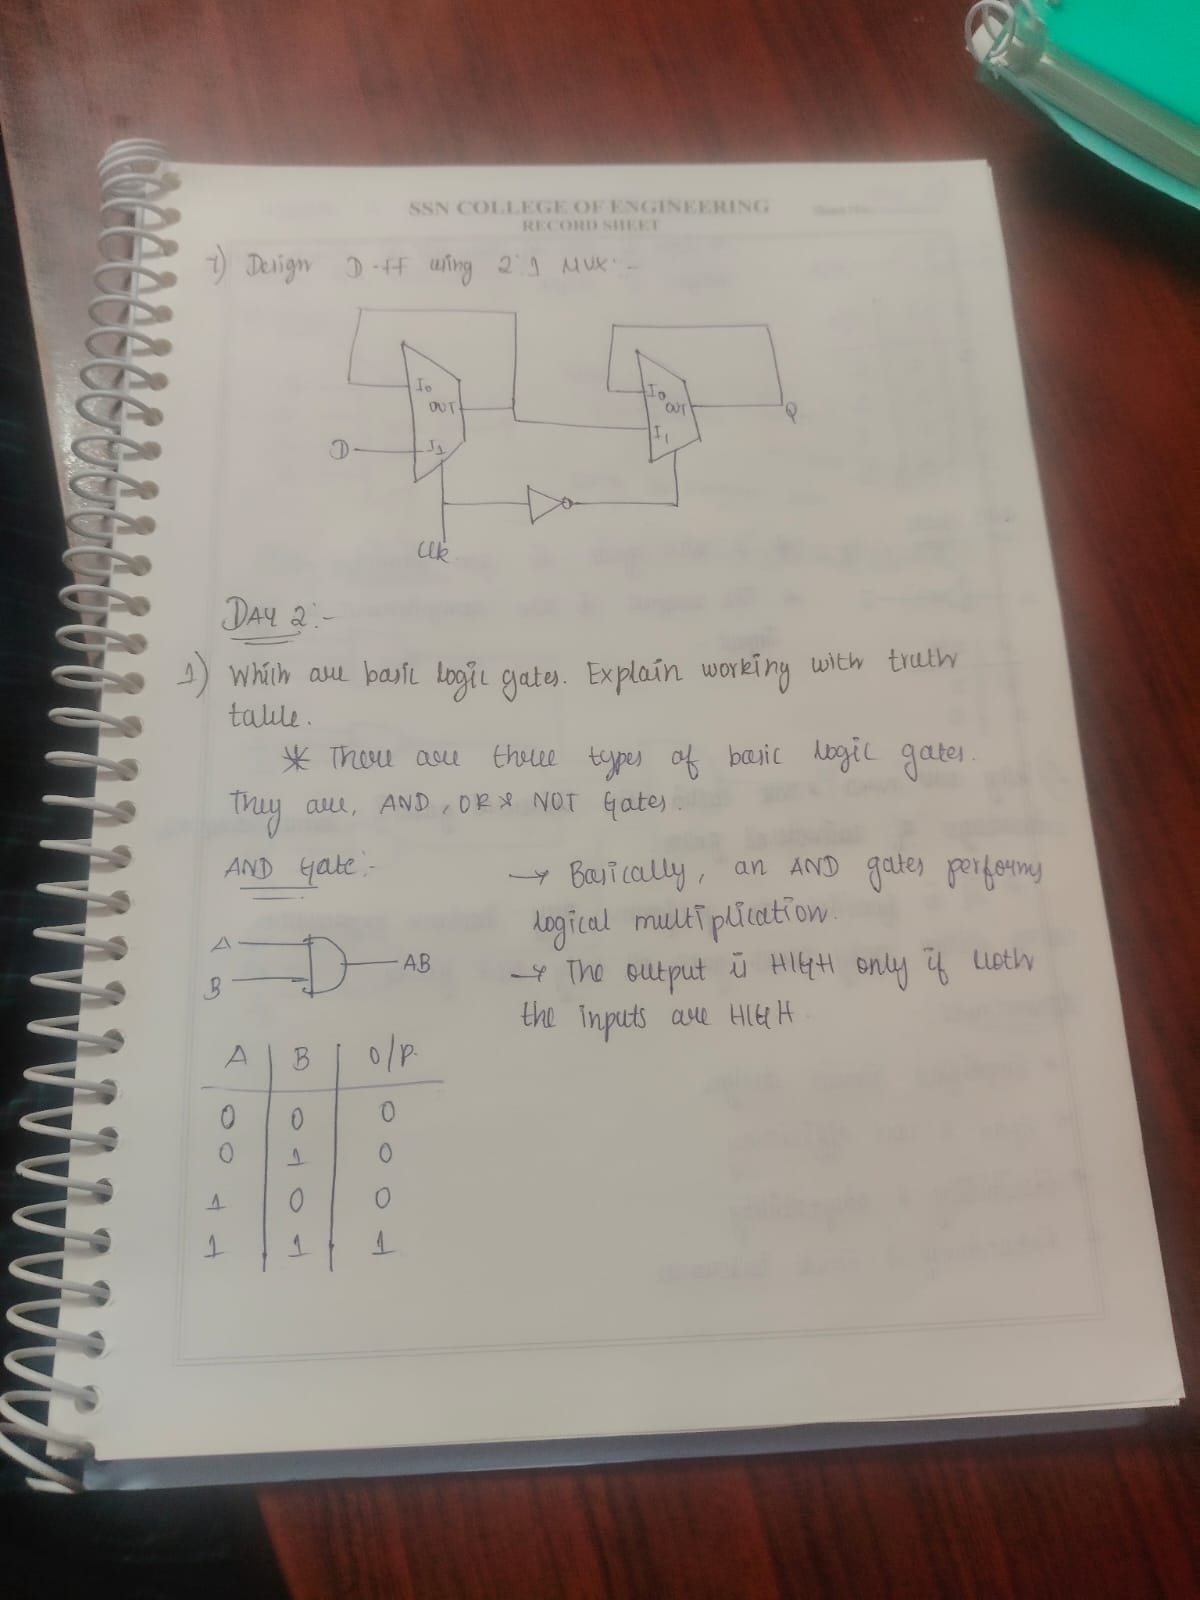 SSN COLLEGE OF ENGINEERING
RECORD SHEET
7) Design D-FF using 2:1 MUX:-
I0
OUT
D
I1
I0
OUT
I1
Q
Clk
DAY 2:-
1) Which are basic logic gates. Explain working with truth
table.
* There are three types of basic logic gates.
They are, AND, OR & NOT Gates.
AND Gate:-
→ Basically, an AND gates performs
logical multiplication.
A
B
AB
→ The output is HIGH only if both
the inputs are HIGH.
A B O/P.
0 0 0
0 1 0
1 0 0
1 1 1